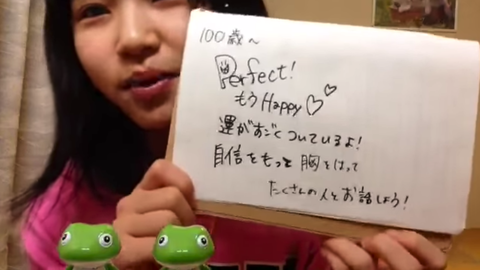 100歳〜
Perfect!
もうHappy♡♡
運がすごくついているよ!
自信をもって胸をはって
たくさんの人とお話しよう!